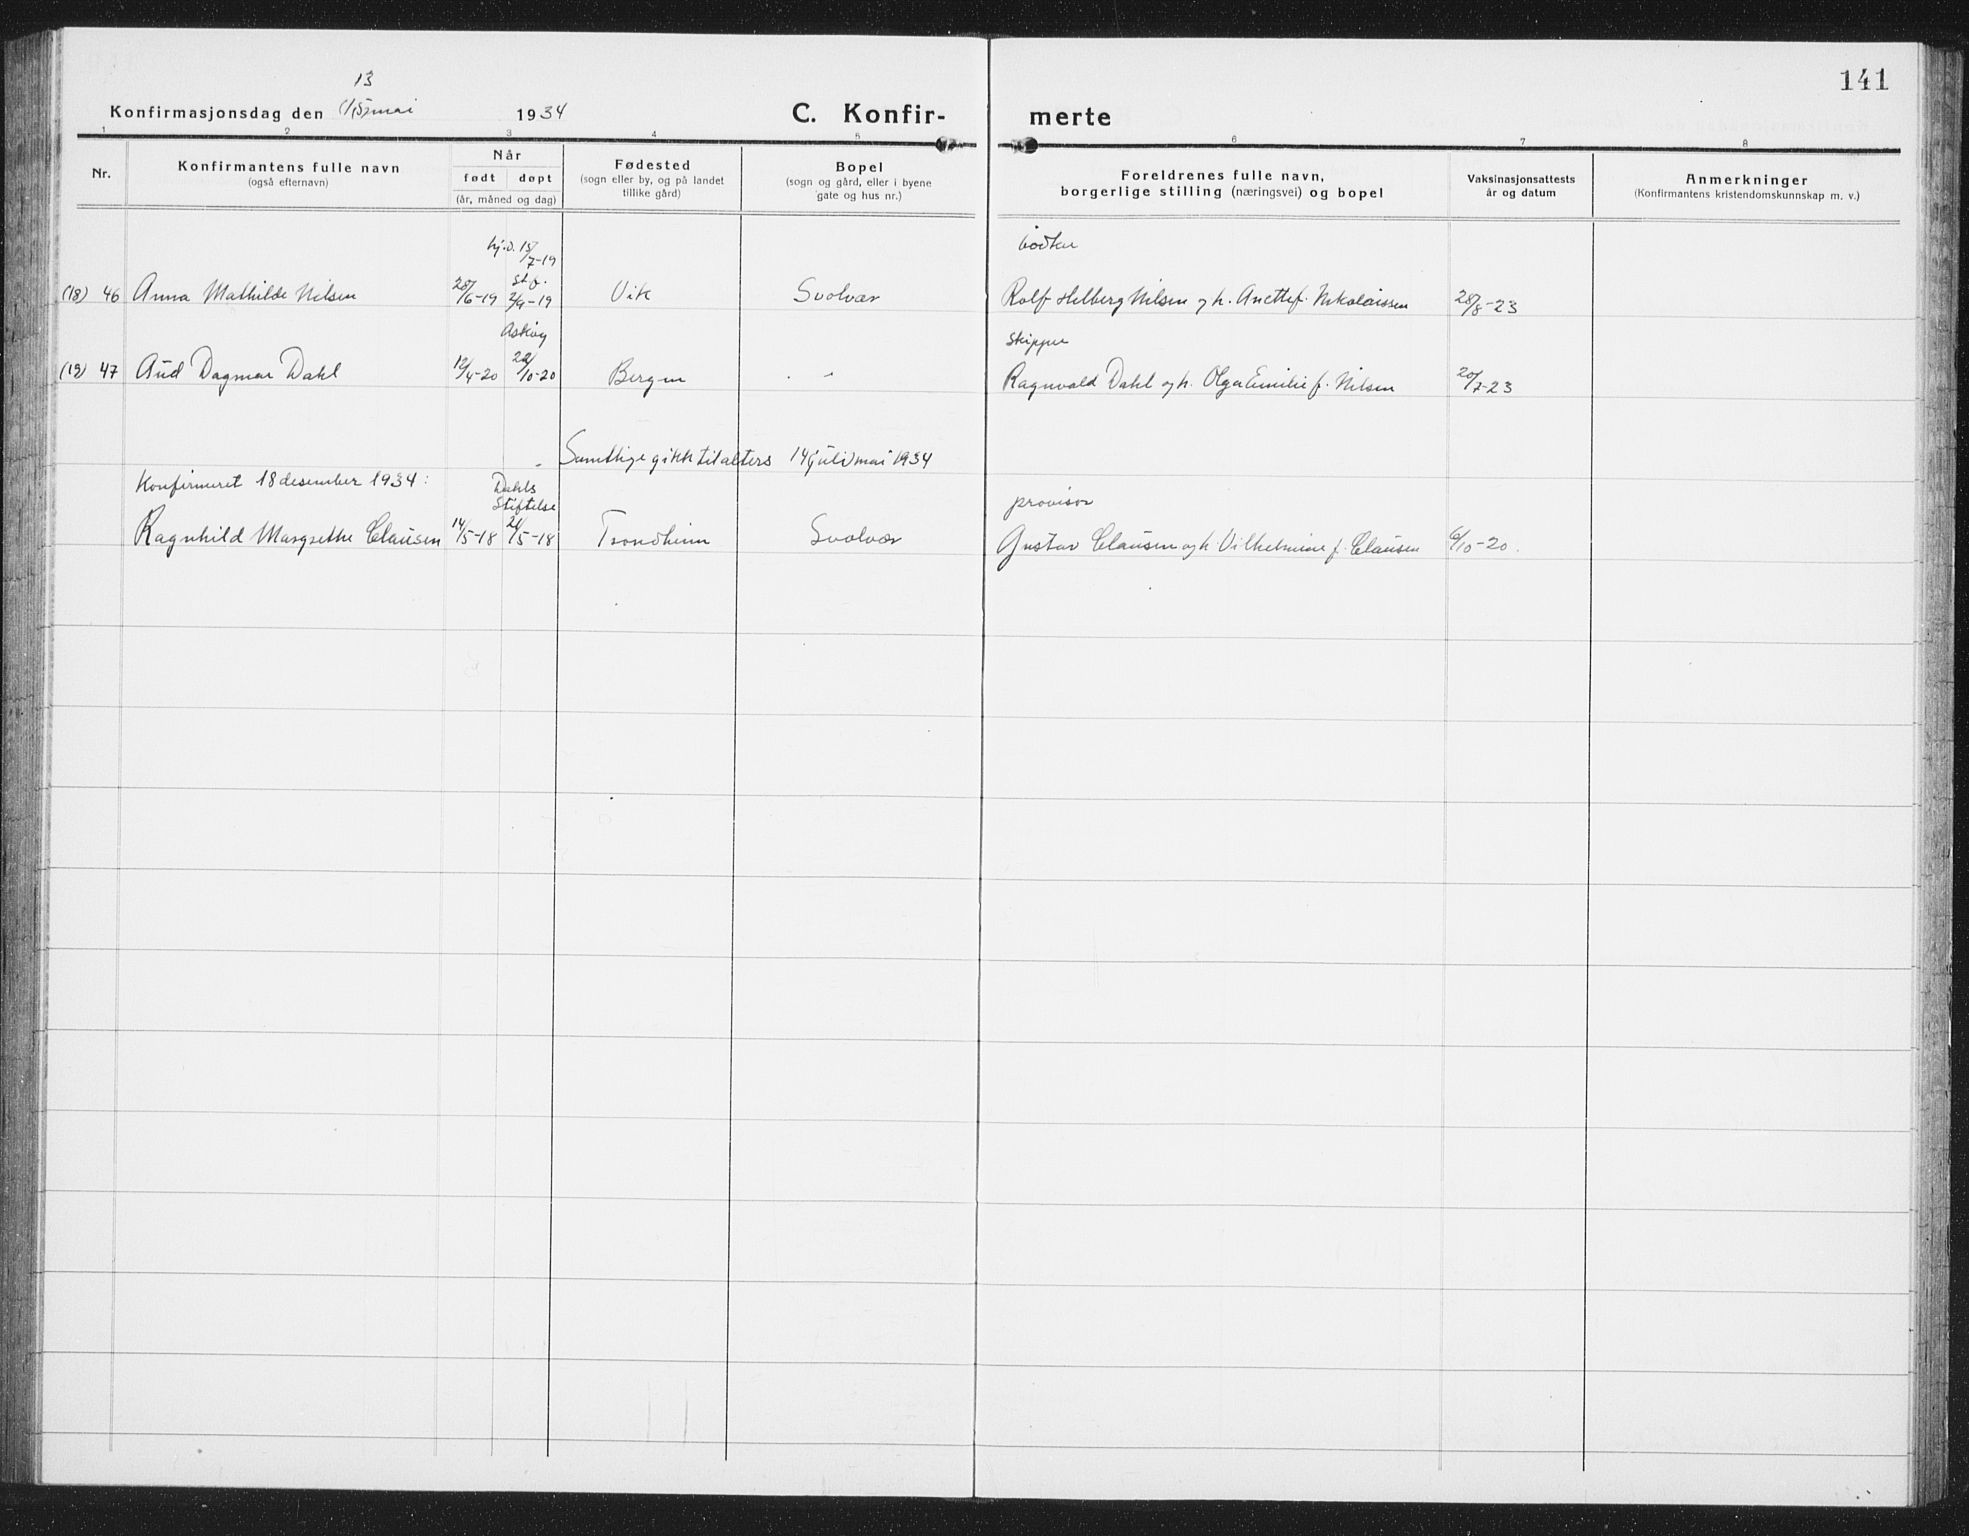 141
13
Konfirmasjonsdag den (15) mai 1934 C. Konfir- merte
1 2 3 4 5 6 7 8
Nr.
Konfirmantens fulle navn
(også efternavn)
Når
født døpt
(år, måned og dag)
Fødested
(sogn eller by, og på landet
tillike gård)
Bopel
(sogn og gård, eller i byene
gate og hus nr.)
Foreldrenes fulle navn,
borgerlige stilling (næringsvei) og bopel
Vaksinasjonsattests
år og datum
Anmerkninger
(Konfirmantens kristendomskunnskap m. v.)
hj.d. 15/7-19 bødker
st.f.
(18) 46 Anna Mathilde Nilsen 28/6-19 2/9-19 Vik Svolvær Rolf Helberg Nilsen og h. Anette f. Nikolaissen 28/8-23
Askøy skipper
(19) 47 Aud Dagmar Dahl 12/4-20 22/10-20 Bergen . " Ragnvald Dahl og h. Olga Emilie f. Nilsen 20/7-23
Samtlige gikk til alters 14 (juli) mai 1934
Konfirmeret 18 desember 1934: Dahls
Stiftelse provisor
Ragnhild Margrethe Clausen 14/5-18 21/5-18 Trondheim Svolvær Gustav Clausen og h. Vilhelmine f. Clausen 6/10-20.